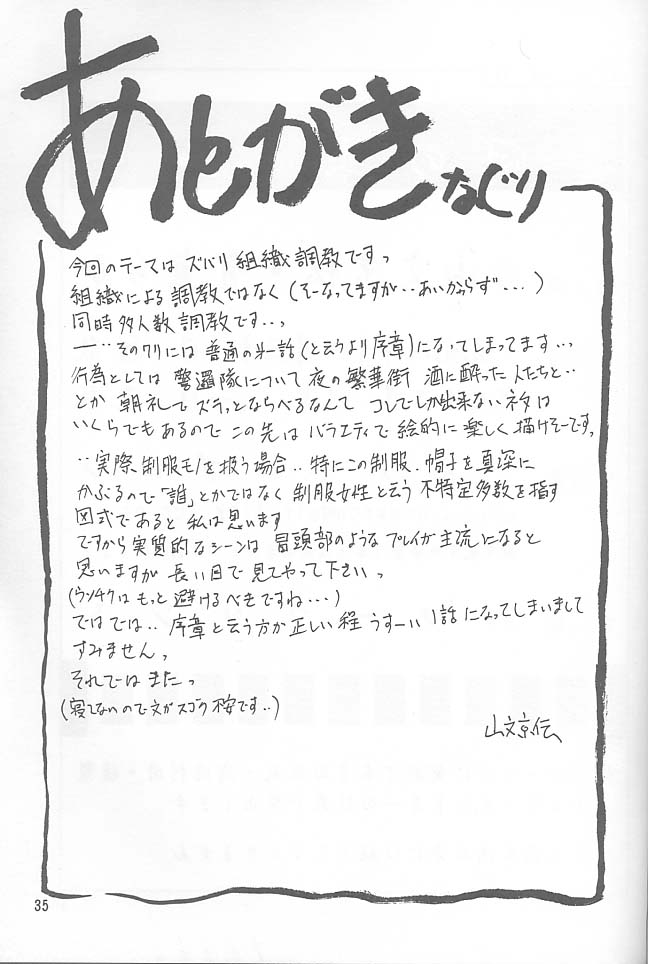 あとがき
なぐり
今回のテーマは ズバリ 組織調教ですっ
組織による 調教ではなく (そーなってますが‥あいかわらず‥・)
同時多人数調教です‥っ
一‥そのワリには 普通の第一話(と云うより序章)になってしまってます‥、
行為としては 警邏隊について 夜の繁華街 酒に酔った人たちと‥
とか 朝礼で ズラッとならべるなんて コレでしか出来ないネタは
いくらでもあるので この先は バラエティで絵的に楽しく描けそーです。
‥実際、制服モノを扱う場合‥特にこの制服、帽子を真深に
かぶるので「誰」とかではなく 制服女性と云う 不特定多数を指す
図式であると 私は思います
ですから実質的なシーンは 冒頭部のようなプレイが主流になると
思いますが 長い目で見てやって下さいっ
(ウンチクは もっと 避けるべきですね・・・)
ではでは‥ 序章と云う方が正しい程 うすーい 1話になってしまいまして
すみません、
それではまたっ
(寝てないので文がスゴク不安です‥)
山文京伝
35